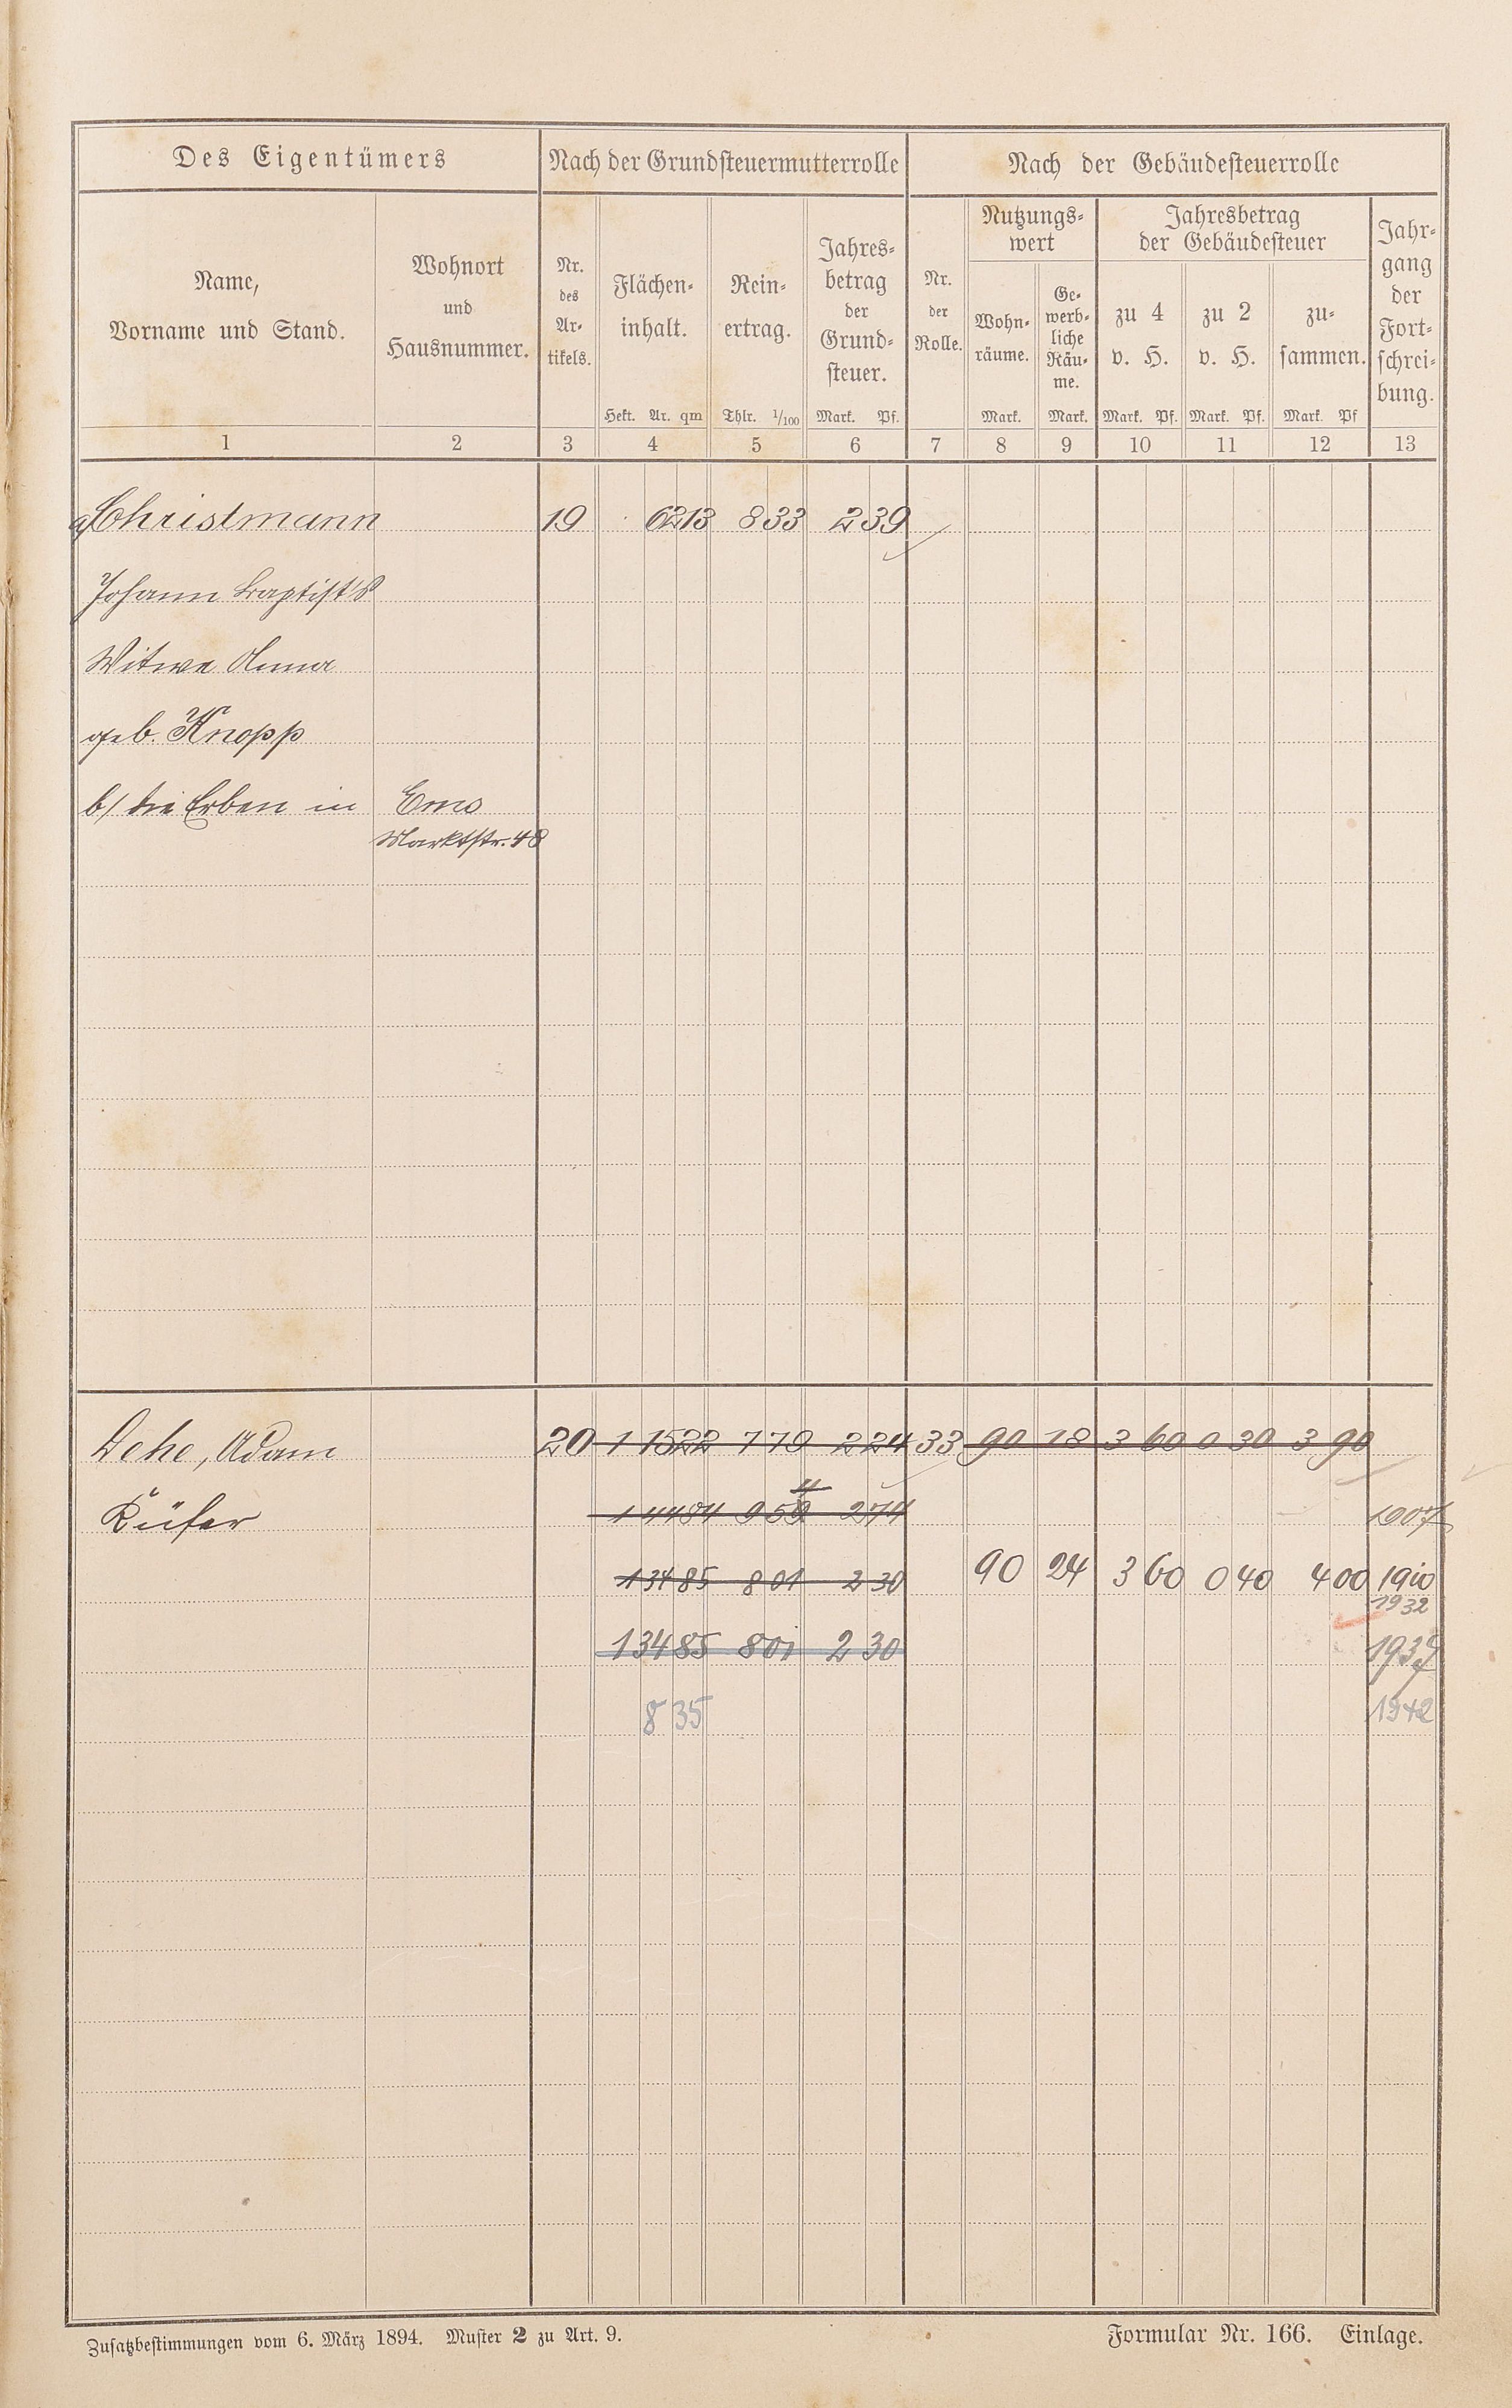 Des Eigentümers Nach der Grundsteuermutterrolle Nach der Gebäudesteuerrolle
Name,
Vorname und Stand.
Wohnort
und
Hausnummer.
Nr.
des
Ar-
tikels.
Flächen-
inhalt.
Hekt. Ar. qm
Rein-
ertrag.
Thlr. 1/100
Jahres-
betrag
der
Grund-
steuer.
Mark. Pf.
Nr.
der
Rolle.
Nutzungs-
wert
Wohn-
räume.
Mark.
Ge-
werb-
liche
Räu-
me.
Mark.
Jahresbetrag
der Gebäudesteuer
zu 4
v. H.
Mark. Pf.
zu 2
v. H.
Mark. Pf.
zu-
sammen.
Mark. Pf
Jahr-
gang
der
Fort-
schrei-
bung.
1 2 3 4 5 6 7 8 9 10 11 12 13
a/ Christmann 19 62 13 8 33 2 39
Johann Baptist's
Witwe Anna
geb. Knopp
b/ die Erben in Ems
Marktstr. 48
Dehe, Adam 20 1 15 22 7 79 2 24 33 90 18 3 60 0 30 3 90
Küfer 1 44 84 9 59 2 74 1907
4
1 34 85 8 01 2 30 90 24 3 60 0 40 4 00 1910
1932
1 34 85 8 01 2 30 1937
8 35 1942
Zusatzbestimmungen vom 6. März 1894. Muster 2 zu Art. 9. Formular Nr. 166. Einlage.